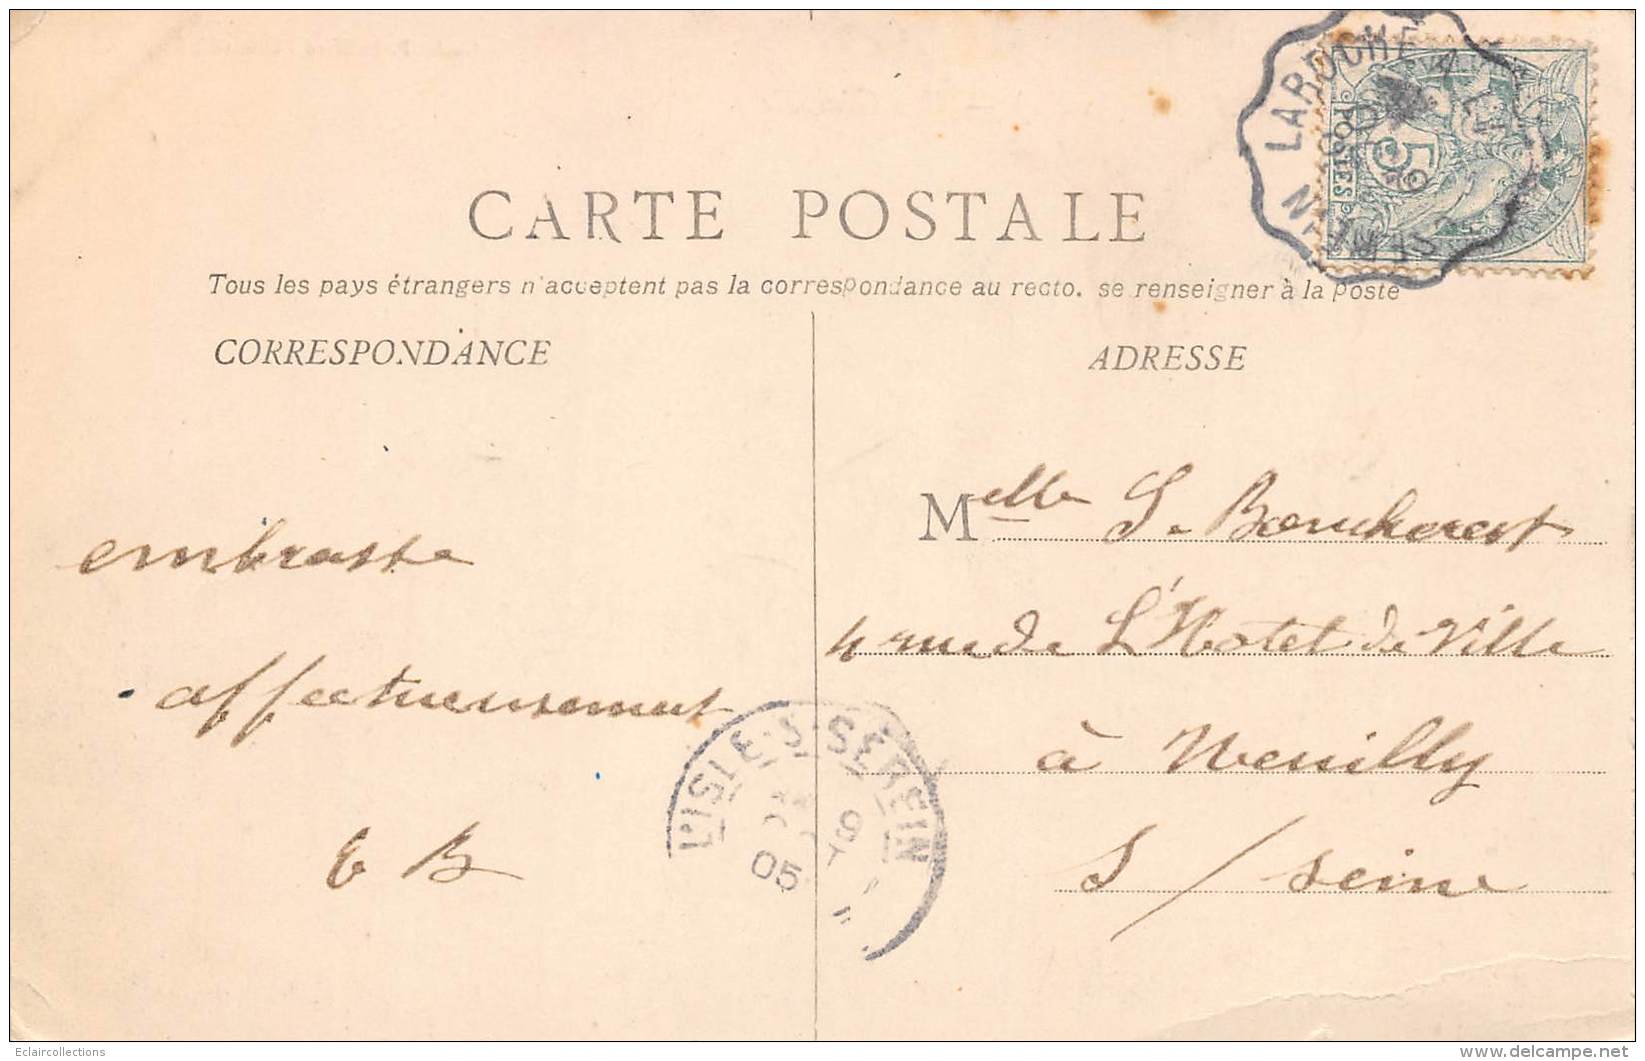 LAROCHE
POSTES
5
CARTE POSTALE
Tous les pays étrangers n'acceptent pas la correspondance au recto. se renseigner à la poste
CORRESPONDANCE
ADRESSE
embrasse
affectueusement
E B
Melle S. Boucherest
4 rue de L'Hotel de Ville
à Neuilly
S / Seine
L'ISLE-S-SEREIN
9
05
Eclaircollections
delcampe.net